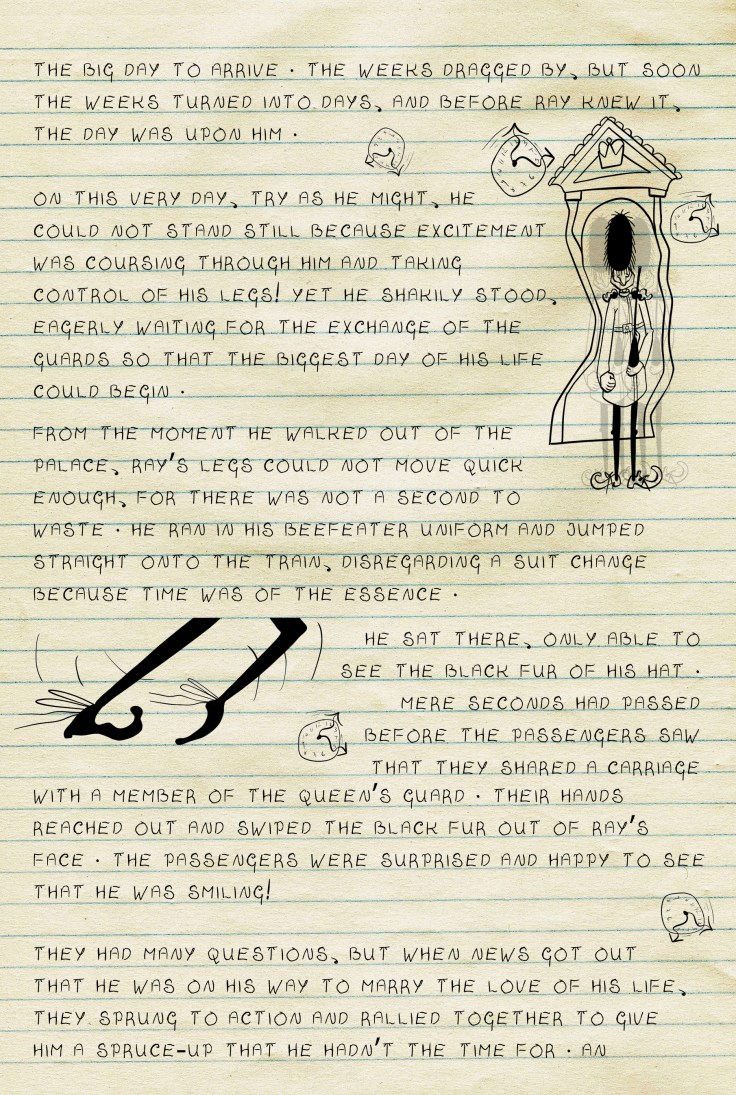 THE BIG DAY TO ARRIVE. THE WEEKS DRAGGED BY, BUT SOON
THE WEEKS TURNED INTO DAYS, AND BEFORE RAY KNEW IT,
THE DAY WAS UPON HIM.
ON THIS VERY DAY, TRY AS HE MIGHT, HE
COULD NOT STAND STILL BECAUSE EXCITEMENT
WAS COURSING THROUGH HIM AND TAKING
CONTROL OF HIS LEGS! YET HE SHAKILY STOOD,
EAGERLY WAITING FOR THE EXCHANGE OF THE
GUARDS SO THAT THE BIGGEST DAY OF HIS LIFE
COULD BEGIN.
FROM THE MOMENT HE WALKED OUT OF THE
PALACE, RAY'S LEGS COULD NOT MOVE QUICK
ENOUGH, FOR THERE WAS NOT A SECOND TO
WASTE. HE RAN IN HIS BEEFEATER UNIFORM AND JUMPED
STRAIGHT ONTO THE TRAIN, DISREGARDING A SUIT CHANGE
BECAUSE TIME WAS OF THE ESSENCE.
HE SAT THERE, ONLY ABLE TO
SEE THE BLACK FUR OF HIS HAT.
MERE SECONDS HAD PASSED
BEFORE THE PASSENGERS SAW
THAT THEY SHARED A CARRIAGE
WITH A MEMBER OF THE QUEEN'S GUARD. THEIR HANDS
REACHED OUT AND SWIPED THE BLACK FUR OUT OF RAY'S
FACE. THE PASSENGERS WERE SURPRISED AND HAPPY TO SEE
THAT HE WAS SMILING!
THEY HAD MANY QUESTIONS, BUT WHEN NEWS GOT OUT
THAT HE WAS ON HIS WAY TO MARRY THE LOVE OF HIS LIFE,
THEY SPRUNG TO ACTION AND RALLIED TOGETHER TO GIVE
HIM A SPRUCE-UP THAT HE HADN'T THE TIME FOR. AN